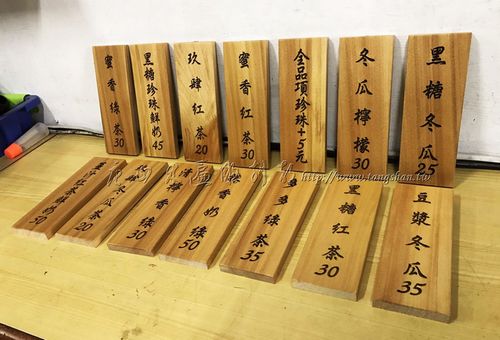 蜜香綠茶30
黑糖珍珠鮮奶45
玖肆紅茶20
蜜香紅茶30
全品項珍珠+5元
冬瓜檸檬30
黑糖冬瓜25
冬瓜茶20
香綠30
香奶綠50
多多綠茶35
黑糖紅茶30
豆漿冬瓜35
http://www.tangshan.tw